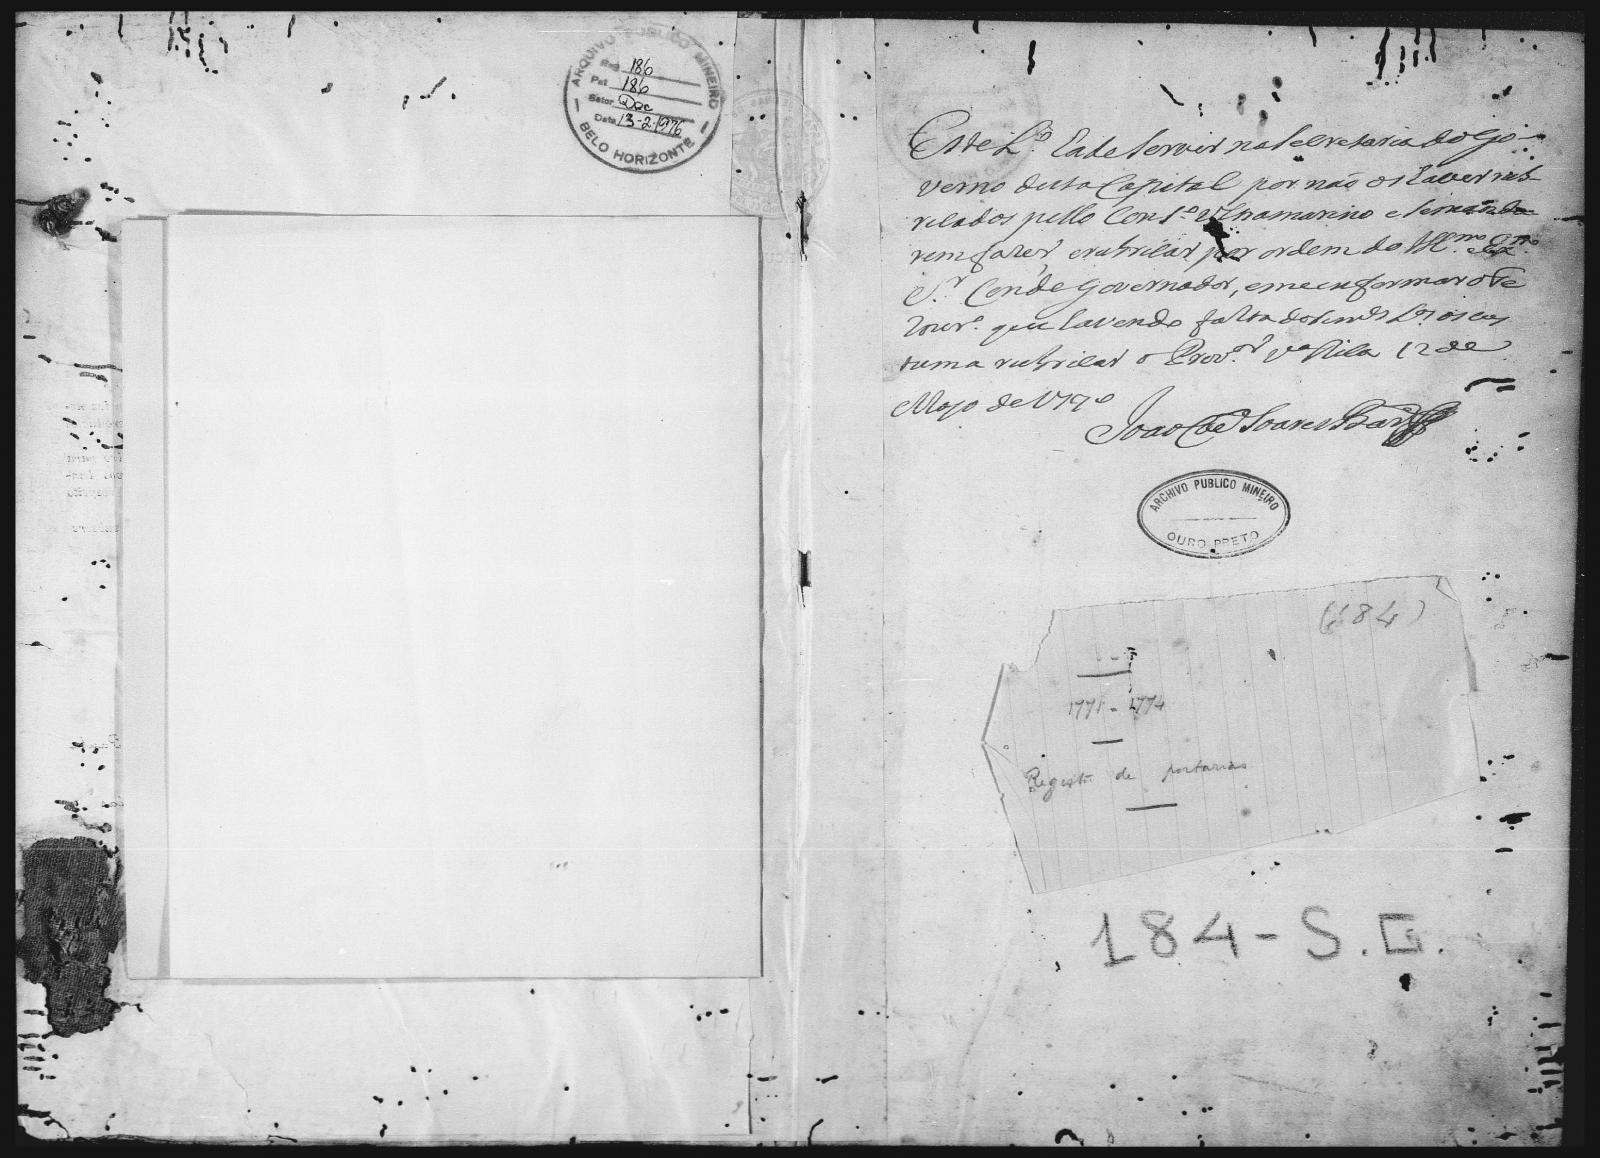 ARQUIVO PUBLICO MINEIRO
Reg. 186
Pat. 186
Setor Doc
Data 13-2-1976
BELO HORIZONTE
Este L.º ha de servir na Secretaria do Go-
verno desta Capital por não os haver rub-
ricados pello Cons.º Ultramarino e se mandar
em fazer, e rubricar por ordem do Ill.mo e Ex.mo
S.r Conde Governador, e me informar o Te
zour.º que havendo falta de semes L.os os cos
tuma rubricar o Prov.or V.ª Rica 12 de
Mayo de 1770
João Soares
ARCHIVO PUBLICO MINEIRO
OURO PRETO
(184)
1771 - 1774
Registo de portarias
184 - S. G.